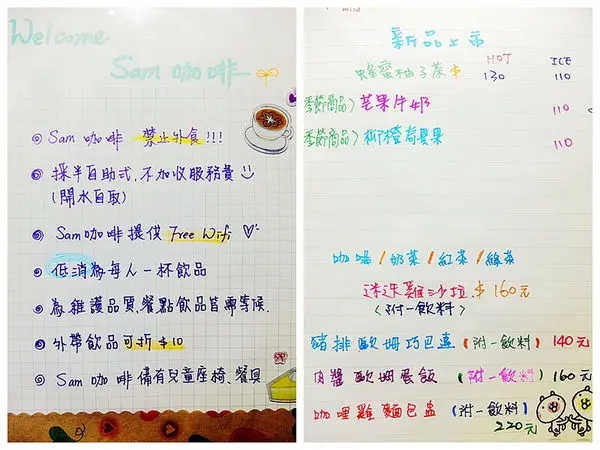 Welcome
Sam 咖啡
Sam 咖啡 禁止外食!!!
採半自助式,不加收服務費
(開水自取)
Sam咖啡提供 Free Wifi
低消為每人一杯飲品
為維護品質,餐點飲品皆需等候.
外帶飲品可折 $10
Sam 咖啡 備有兒童座椅、餐具
新品上市
HOT ICE
蜂蜜柚子茶 $ 130 110
季節商品>芒果牛奶 110
季節商品>柳橙百果 110
咖啡/奶茶/紅茶/綠茶
迷迷雞沙拉 $160元
<附一飲料>
豬排歐姆巧巴達 (附一飲料) 140元
肉醬歐姆蛋飯 (附一飲料) 160元
咖哩雞麵包盅 (附一飲料)
220元